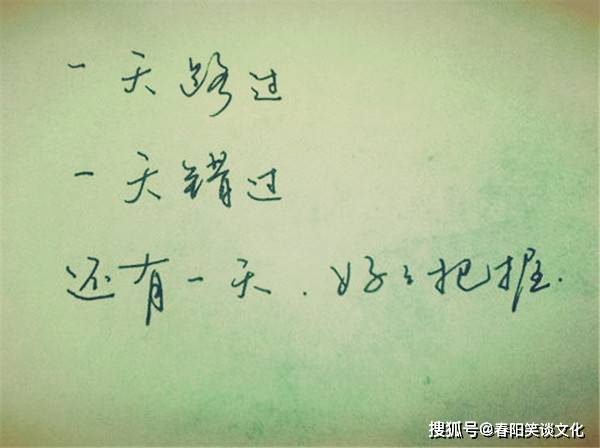 一天路过
一天错过
还有一天.好々把握.
搜狐号@春阳笑谈文化